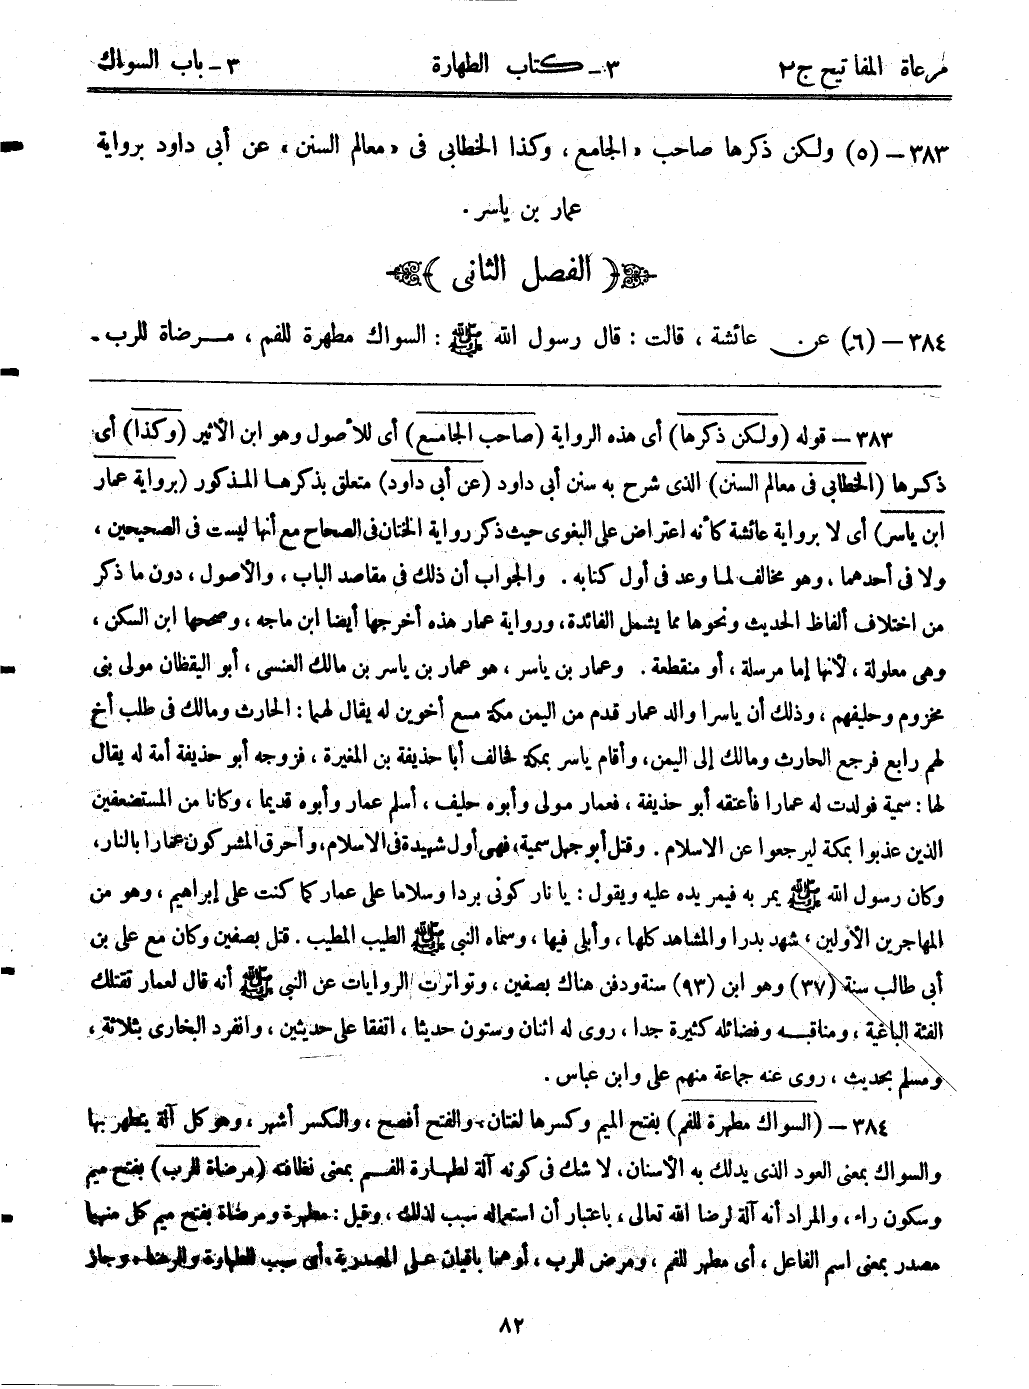 مرعاة المفاتيح ج٢ ٣ـ كتاب الطهارة ٣ـ باب السواك
٣٨٣ – (٥) ولكن ذكرها صاحب «الجامع، وكذا الخطابى فى «معالم السنن» عن أبى داود برواية
عمار بن ياسر.
﴿ الفصل الثانى ﴾
٣٨٤ – (٦) عن عائشة، قالت: قال رسول الله ﷺ: السواك مطهرة للفم، مرضاة للرب ـ
٣٨٣ – قوله (ولكن ذكرها) أى هذه الرواية (صاحب الجامع) أى للأصول وهو ابن الأثير (وكذا) أى
ذكرها (الخطابى فى معالم السنن) الذى شرح به سنن أبى داود (عن أبى داود) متعلق بذكرها المذكور (برواية عمار
ابن ياسر) أى لا برواية عائشة كأنه اعتراض على البغوى حيث ذكر رواية الختان فى الصحاح مع أنها ليست فى الصحيحين،
ولا فى أحدهما، وهو مخالف لما وعد فى أول كتابه. والجواب أن ذلك فى مقاصد الباب، والأصول، دون ما ذكر
من اختلاف ألفاظ الحديث ونحوها مما يشمل الفائدة، ورواية عمار هذه أخرجها أيضا ابن ماجه، وصححها ابن السكن،
وهى معلولة، لأنها إما مرسلة، أو منقطعة. وعمار بن ياسر، هو عمار بن ياسر بن مالك العنسى، أبو اليقظان مولى بنى
مخزوم وحليفهم، وذلك أن ياسرا والد عمار قدم من اليمن مكة مع أخوين له يقال لهما: الحارث ومالك فى طلب أخ
لهم رابع فرجع الحارث ومالك إلى اليمن، وأقام ياسر بمكة فحالف أبا حذيفة بن المغيرة، فزوجه أبو حذيفة أمة له يقال
لها: سمية فولدت له عمارا فأعتقه أبو حذيفة، فعمار مولى وأبوه حليف، أسلم عمار وأبوه قديما، وكانا من المستضعفين
الذين عذبوا بمكة ليرجعوا عن الاسلام. وقتل أبو جهل سمية، فهى أول شهيدة فى الاسلام، وأحرق المشركون عمارا بالنار،
وكان رسول الله ﷺ يمر به فيمر يده عليه ويقول: يا نار كونى بردا وسلاما على عمار كما كنت على إبراهيم، وهو من
المهاجرين الأولين، شهد بدرا والمشاهد كلها، وأبلى فيها، وسماه النبى ﷺ الطيب المطيب. قتل بصفين وكان مع على بن
أبى طالب سنة (٣٧) وهو ابن (٩٣) سنة ودفن هناك بصفين، وتواترت الروايات عن النبى ﷺ أنه قال لعمار تقتلك
الفئة الباغية، ومناقبه وفضائله كثيرة جدا، روى له اثنان وستون حديثا، اتفقا على حديثين، وانفرد البخارى بثلاثة،
ومسلم بحديث، روى عنه جماعة منهم على وابن عباس.
٣٨٤ – (السواك مطهرة للفم) بفتح الميم وكسرها لغتان، والفتح أفصح، والكسر أشهر، وهو كل آلة يتطهر بها
والسواك بمعنى العود الذى يدلك به الأسنان، لا شك فى كونه آلة لطهارة الفم بمعنى نظافته (مرضاة للرب) بفتح ميم
وسكون راء، والمراد أنه آلة لرضا الله تعالى، باعتبار أن استعماله سبب لذلك، وقيل: مطهرة ومرضاة بفتح ميم كل منهما
مصدر بمعنى اسم الفاعل، أى مطهر للفم، ومرض للرب، أو هما باقيان على المصدرية، أى سبب للطهارة والرضا، وجاز
٨٢